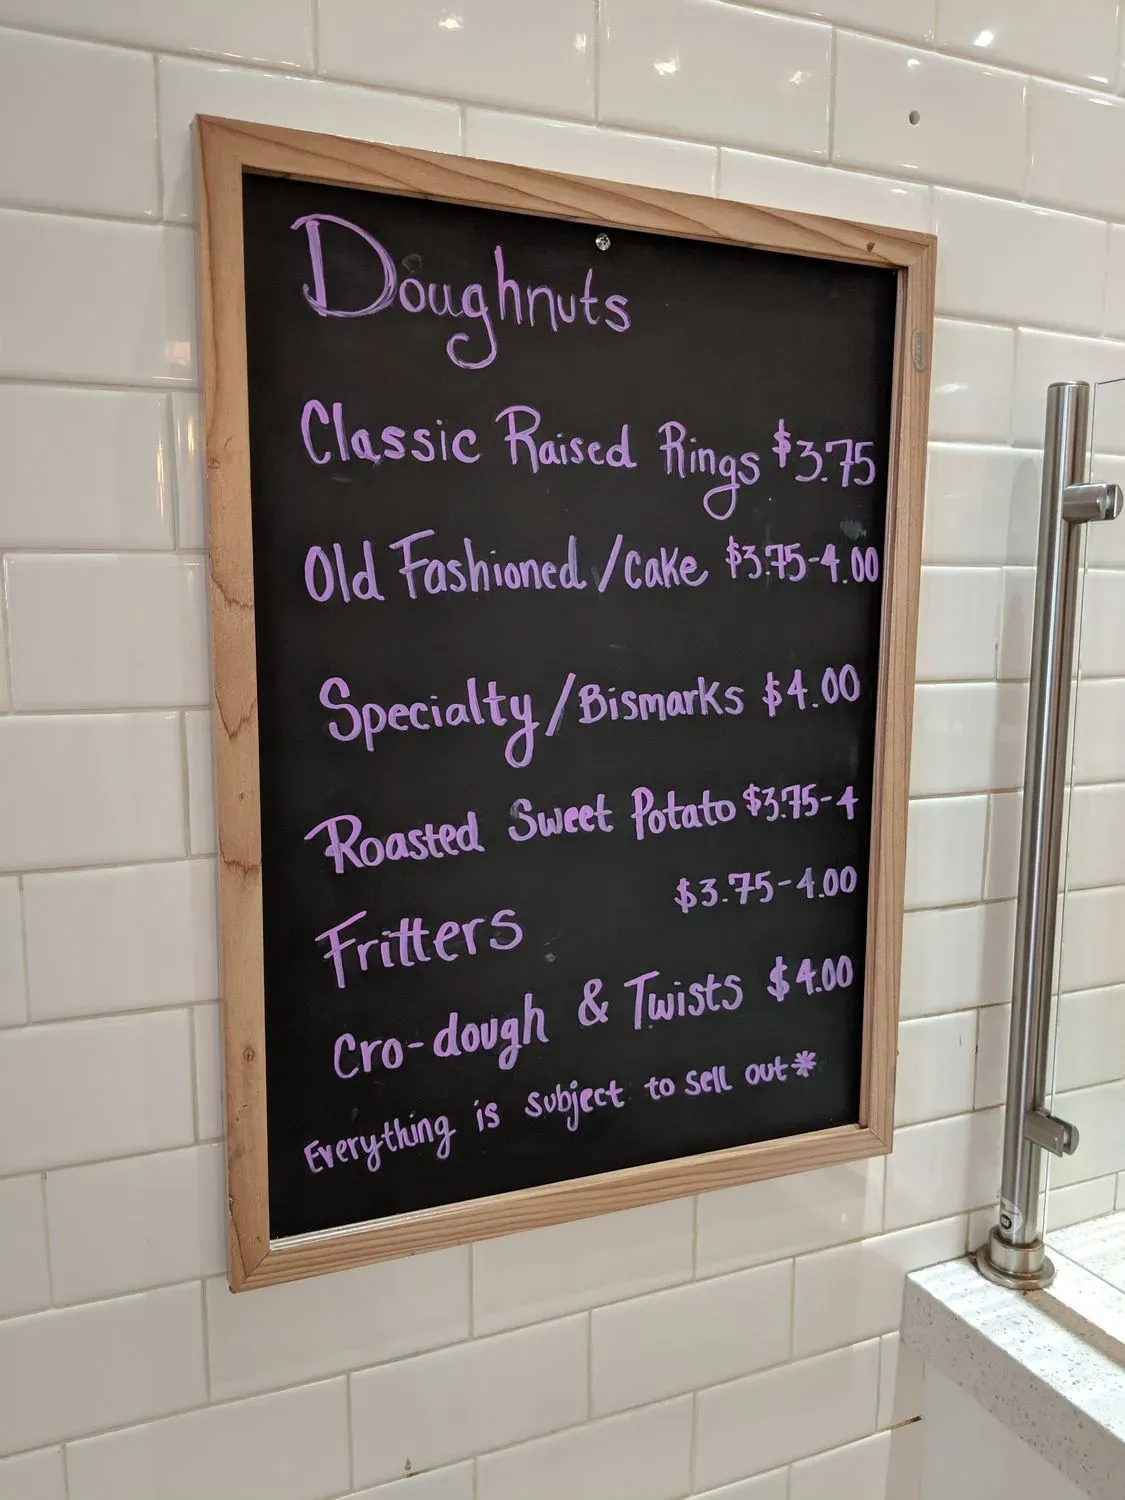 Doughnuts
Classic Raised Rings $3.75
Old Fashioned/cake $3.75-4.00
Specialty/Bismarks $4.00
Roasted Sweet Potato $3.75-4
Fritters $3.75-4.00
Cro-dough & Twists $4.00
Everything is subject to sell out*